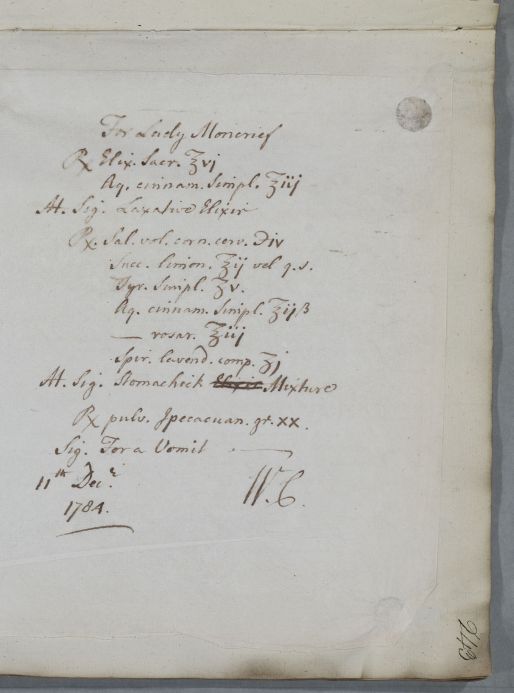 For Lady Moncrief
℞ Elix. Sacr. ℥vj
Aq. cinnam. Simpl. ℥iij
M. Sig. Laxative Elixir
℞. Sal. vol. corn. cerv. ℈iv
Succ. limon. ℥ij vel q.s.
Syr. Simpl. ℥v.
Aq. cinnam. Simpl. ℥ijß
— rosar. ℥iij
Spir. lavend. comp. ʒj
M. Sig. Stomachick Elixir Mixture
℞ pulv. Ipecacuan. gr. xx.
Sig. For a Vomit.
11th Decr.
1784.
W.C.